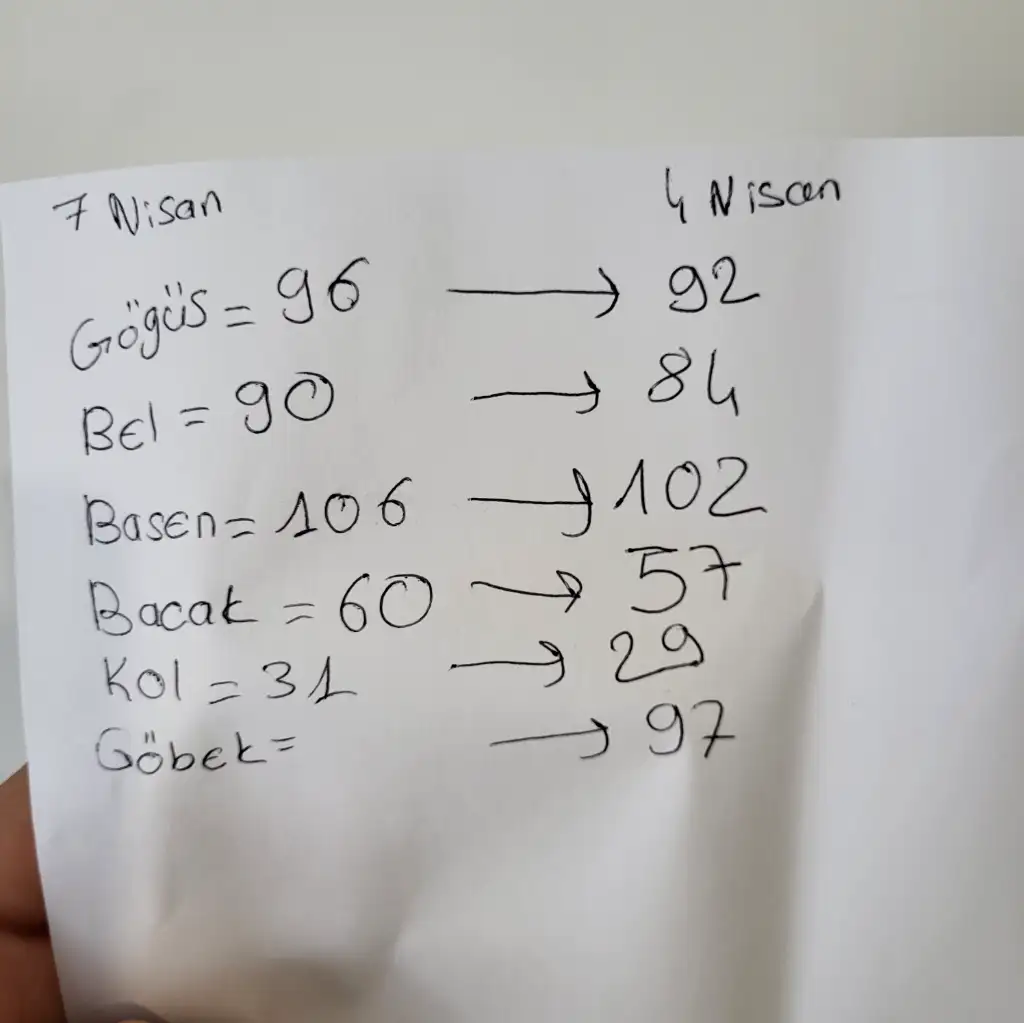 7 Nisan 4 Nisan
Gögüs = 96 → 92
Bel = 90 → 84
Basen = 106 → 102
Bacak = 60 → 57
Kol = 31 → 29
Göbek = → 97